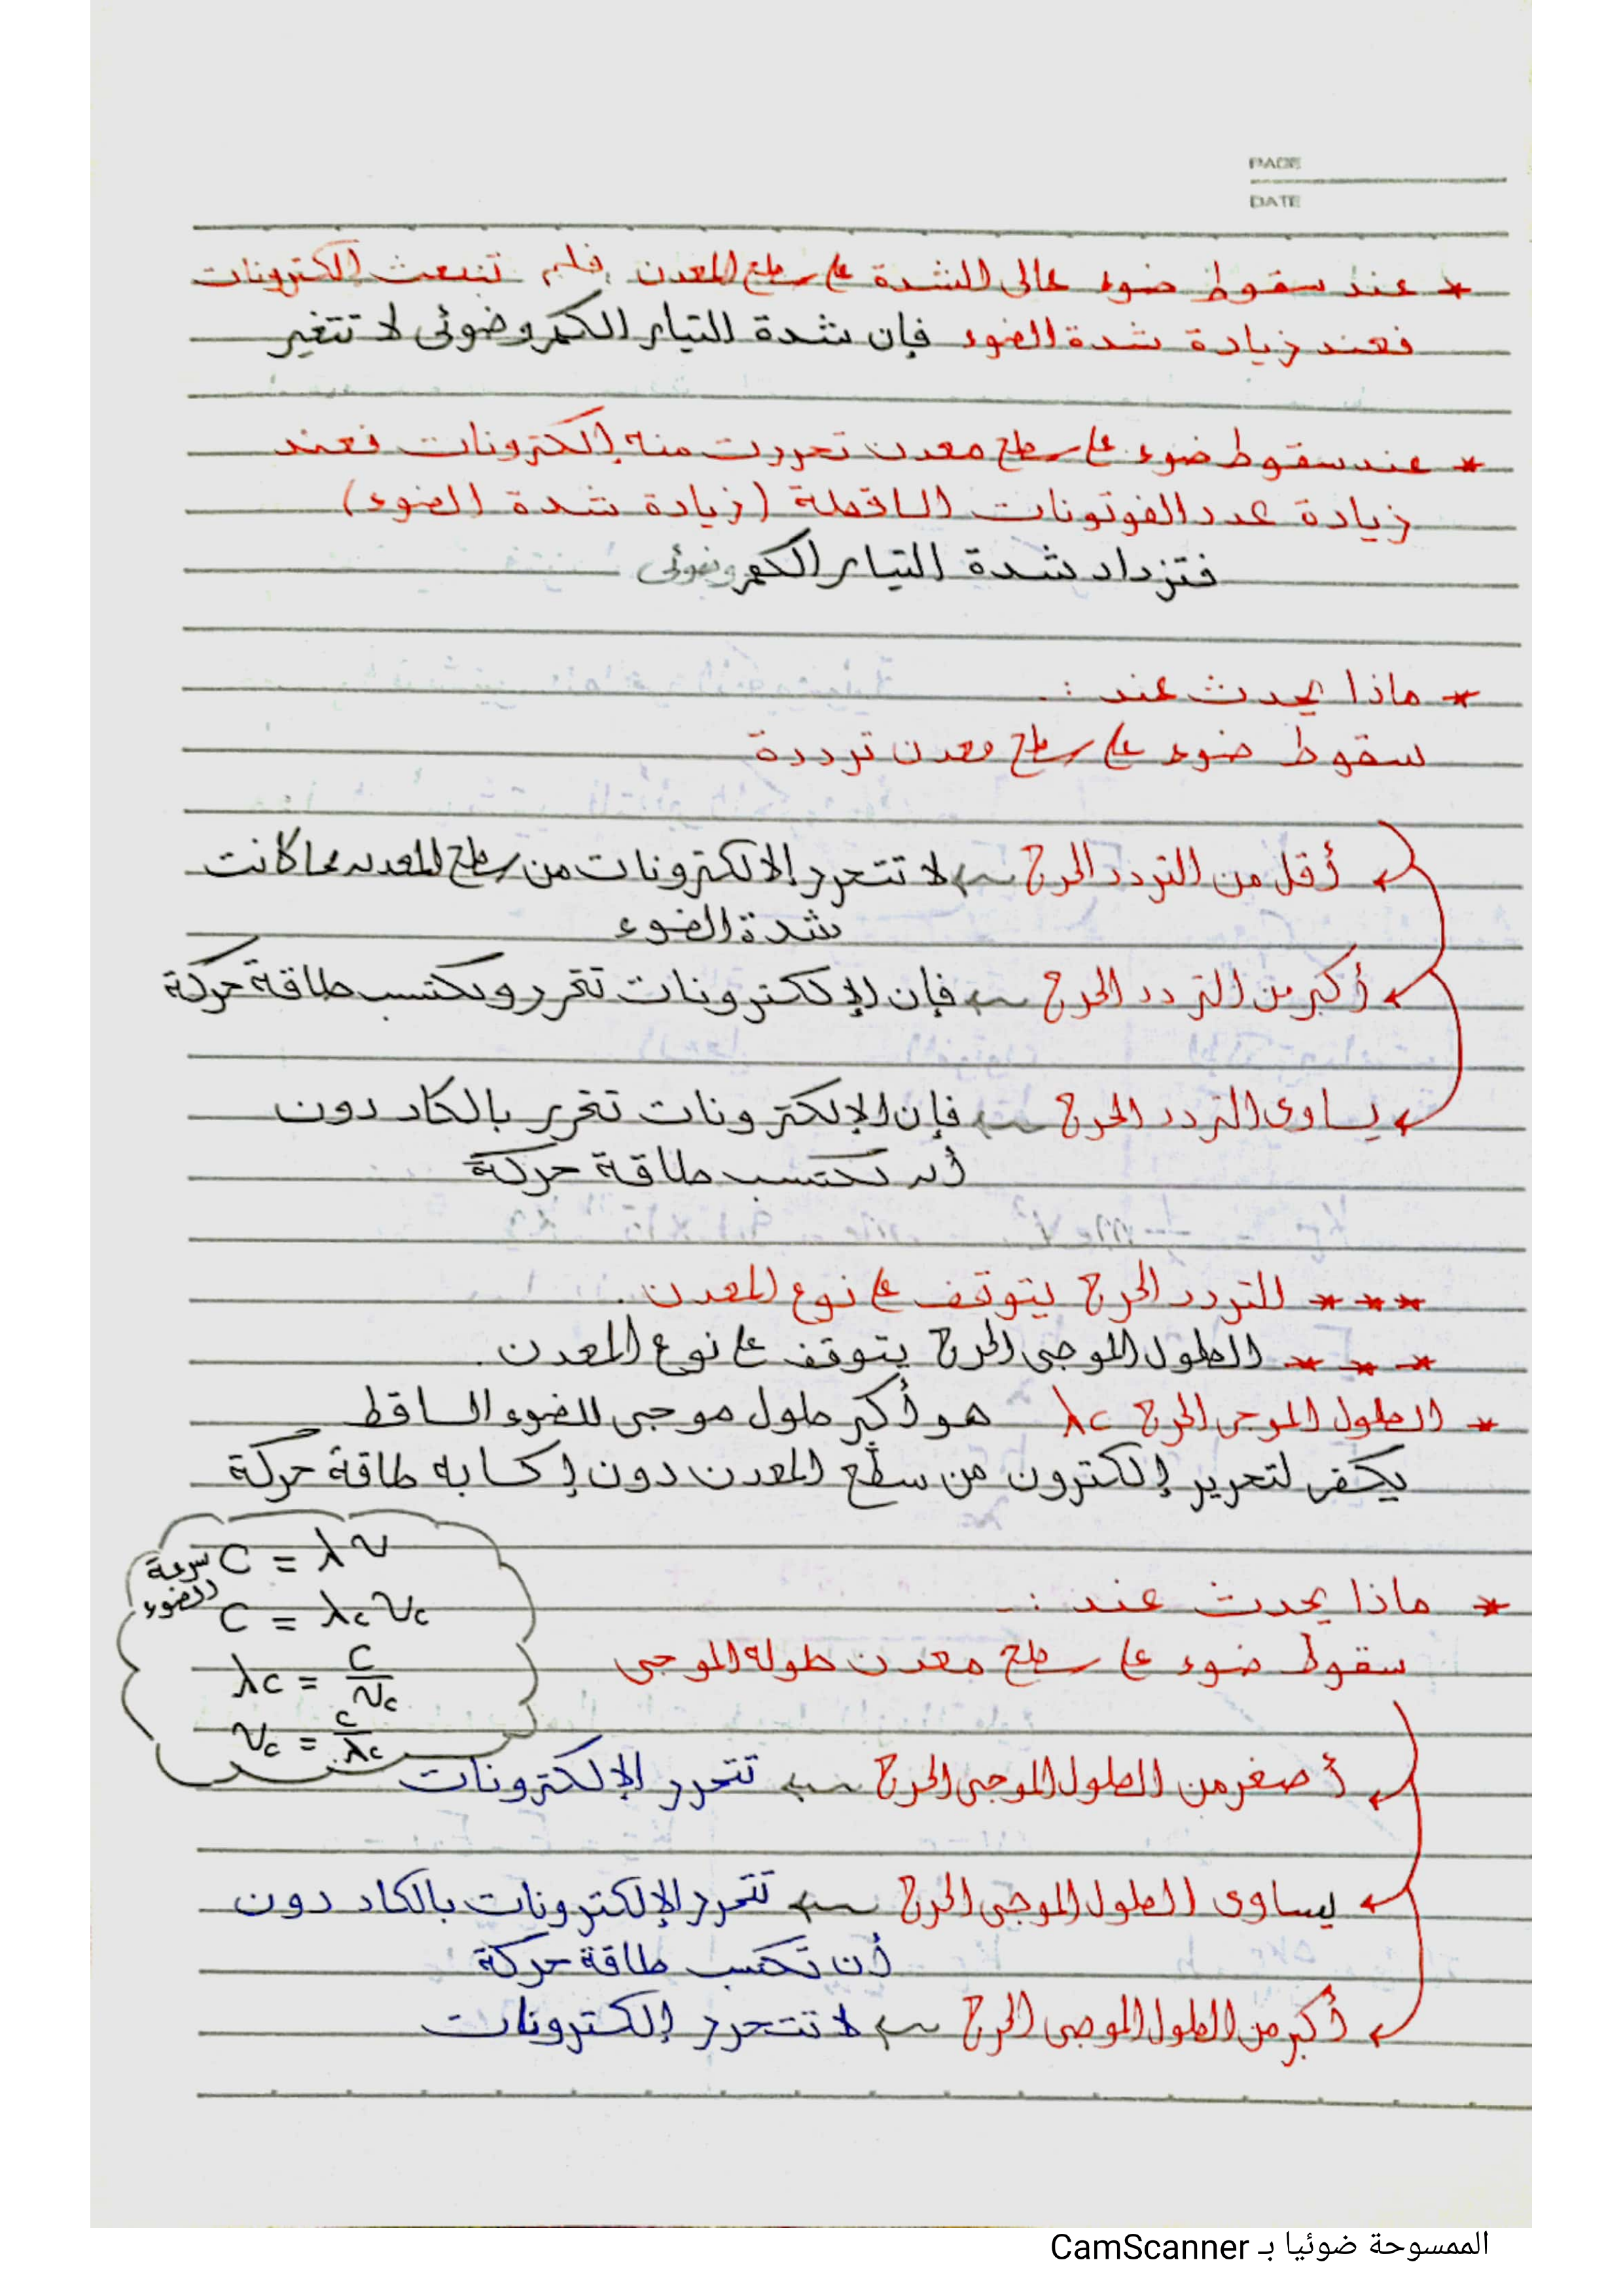 PAGE
DATE
* عند سقوط ضوء عالى الشدة على سطح المعدن فلم تنبعث إلكترونات
فعند زيادة شدة الضوء فإن شدة التيار الكهروضوئى لا تتغير
* عند سقوط ضوء على سطح معدن تحررت منه إلكترونات فعند
زيادة عدد الفوتونات الساقطة (زيادة شدة الضوء)
فتزداد شدة التيار الكهروضوئى
* ماذا يحدث عند :-
سقوط ضوء على سطح معدن تردده
أقل من التردد الحرج ← لا تتحرر الالكترونات من سطح المعدن مهما كانت
شدة الضوء
أكبر من التردد الحرج ← فإن الإلكترونات تتحرر وتكتسب طاقة حركة
يساوى التردد الحرج ← فإن الإلكترونات تتحرر بالكاد دون
أن تكتسب طاقة حركة
*** التردد الحرج يتوقف على نوع المعدن .
*** الطول الموجى الحرج يتوقف على نوع المعدن .
* الطول الموجى الحرج λc هو أكبر طول موجى للضوء الساقط
يكفى لتحرير إلكترون من سطح المعدن دون إكسابه طاقة حركة
سرعة الضوء C = λν
C = λcνc
λc = C/νc
νc = C/λc
* ماذا يحدث عند :-
سقوط ضوء على سطح معدن طوله الموجى
أصغر من الطول الموجى الحرج ← تتحرر الإلكترونات
يساوى الطول الموجى الحرج ← تتحرر الإلكترونات بالكاد دون
أن تكتسب طاقة حركة
أكبر من الطول الموجى الحرج ← لا تتحرر إلكترونات
الممسوحة ضوئيا بـ CamScanner